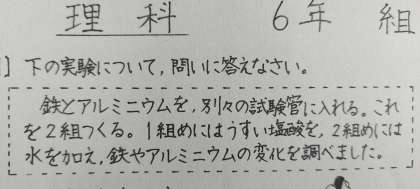 理科 6年 組
1] 下の実験について,問いに答えなさい。
鉄とアルミニウムを,別々の試験管に入れる。これ
を2組つくる。1組めにはうすい塩酸を,2組めには
水を加え,鉄やアルミニウムの変化を調べました。